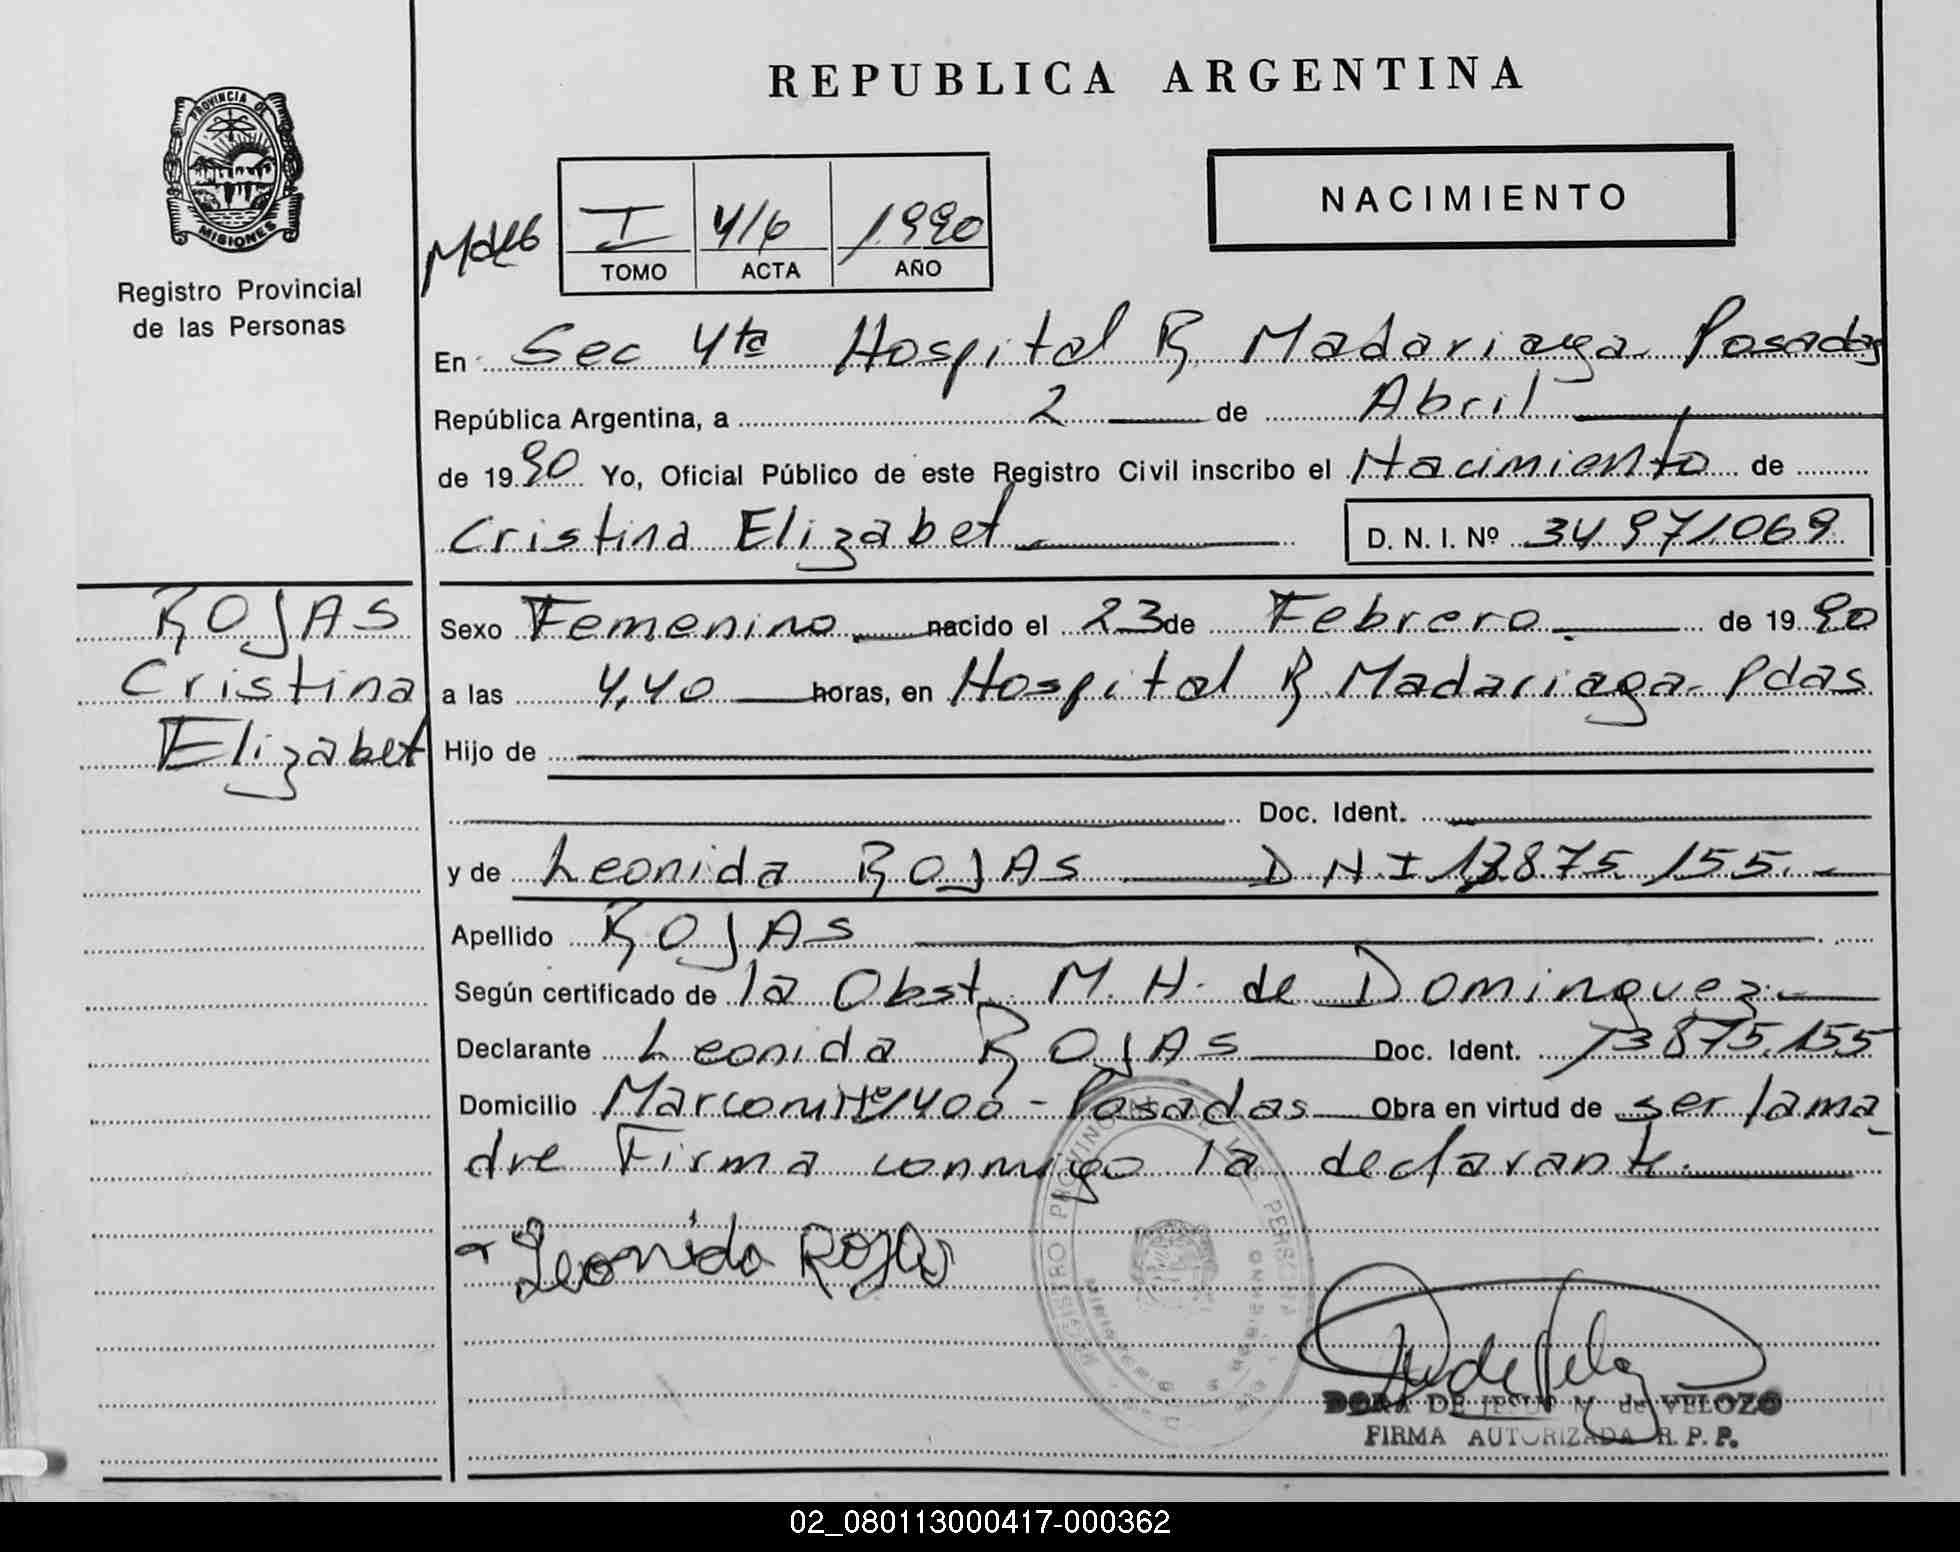 PROVINCIA DE
MISIONES
Registro Provincial
de las Personas
REPUBLICA ARGENTINA
NACIMIENTO
I 416 1990
TOMO ACTA AÑO
En Sec 4ta Hospital R Madariaga Posadas
República Argentina, a 2 de Abril
de 1990 Yo, Oficial Público de este Registro Civil inscribo el Nacimiento de
Cristina Elizabet D. N. I. Nº 34971069
ROJAS
Cristina
Elizabet
Sexo Femenino nacido el 23 de Febrero de 1990
a las 4,40 horas, en Hospital R Madariaga Pdas
Hijo de
Doc. Ident.
y de Leonida ROJAS D N I 13875.155.
Apellido ROJAS
Según certificado de la Obst. M. H. de Dominguez
Declarante Leonida ROJAS Doc. Ident. 13875.155
Domicilio Marconi Nº 1400 - Posadas Obra en virtud de ser la ma_
dre Firma conmigo la declarante.
Leonida Rojas
DORA DE JESUS M. de VELOZO
FIRMA AUTORIZADA R. P. P.
02_080113000417-000362